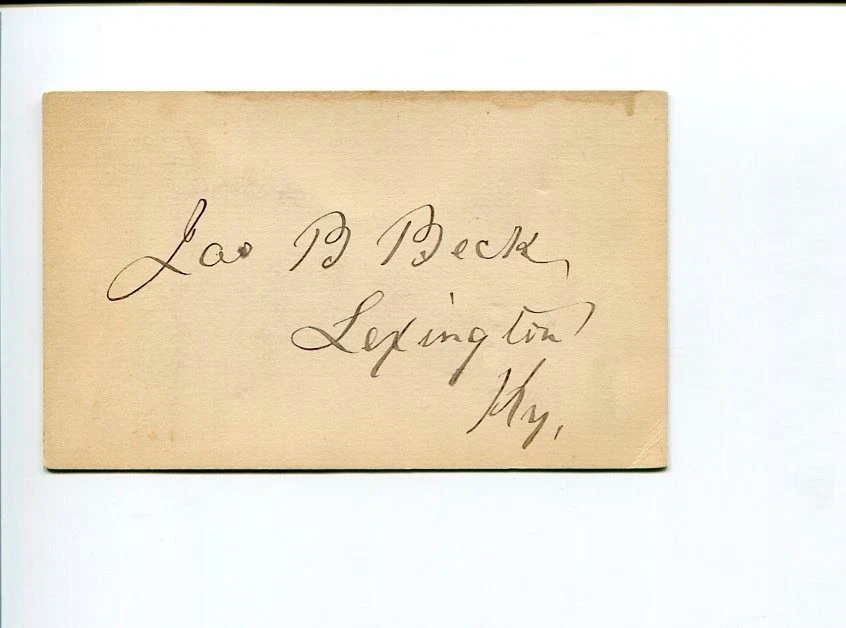 Jas B Beck,
Lexington
Ky.